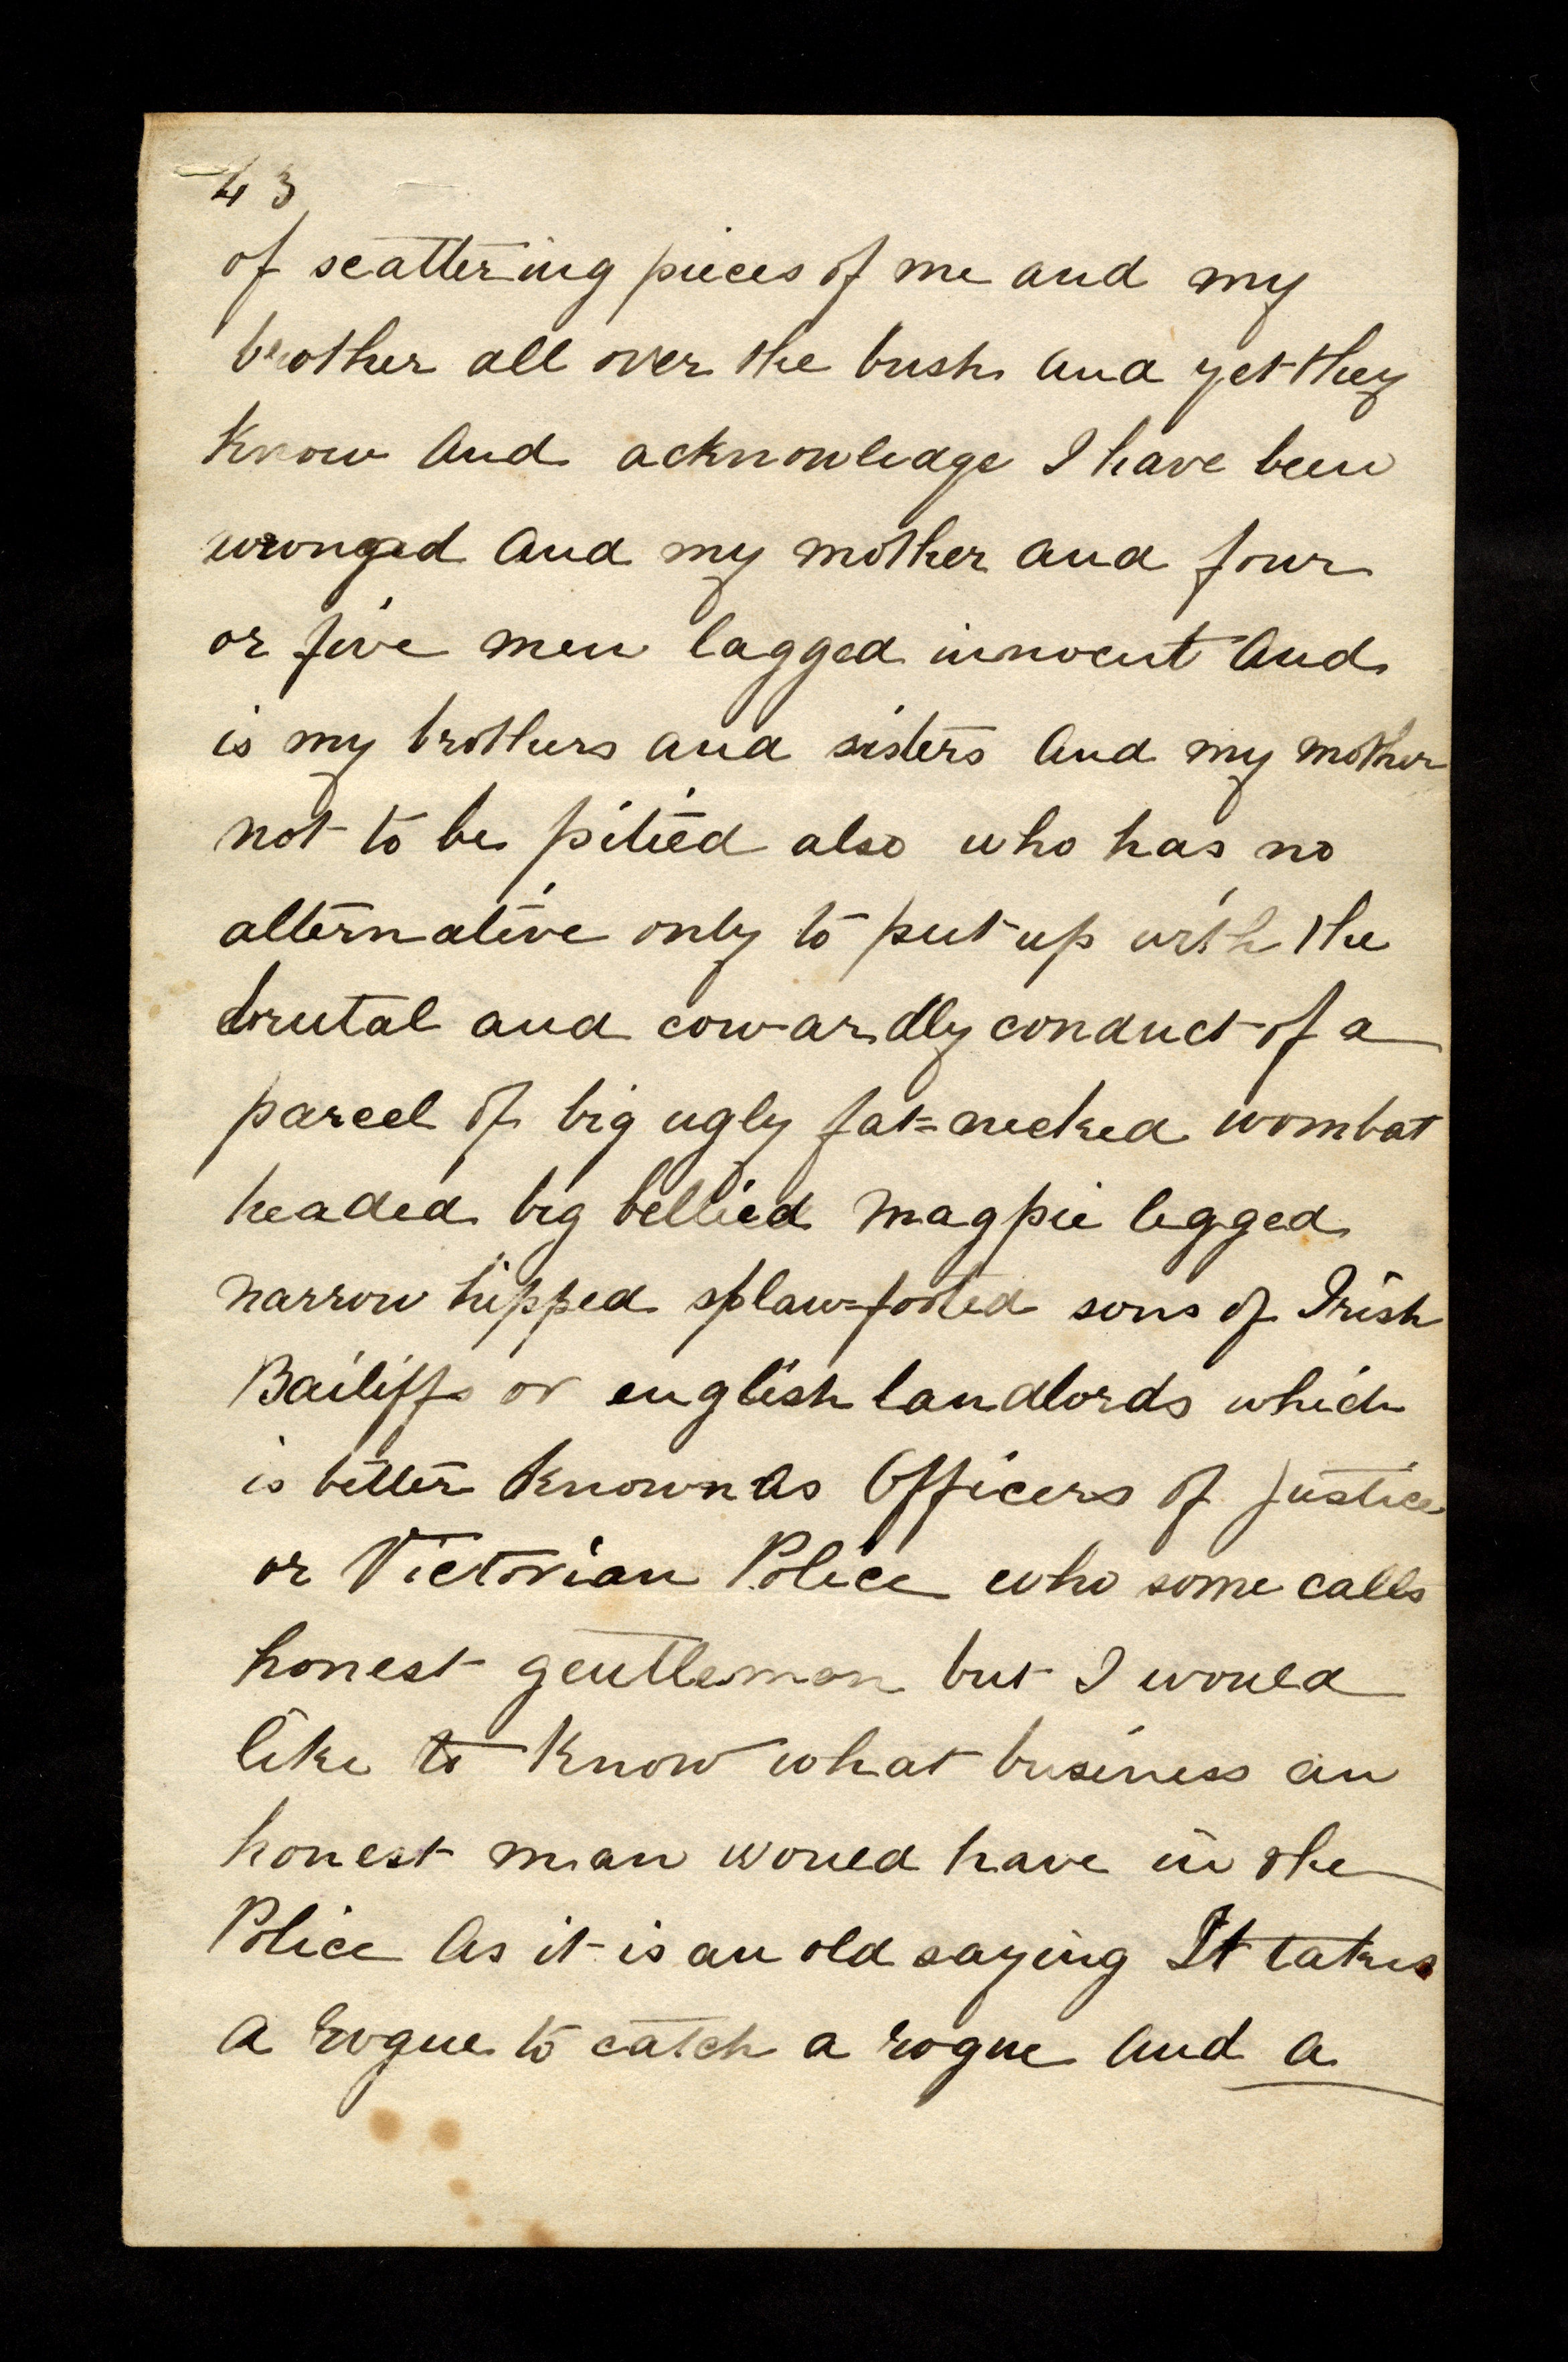 43
of scattering pieces of me and my
brother all over the bush and yet they
know and acknowledge I have been
wronged and my mother and four
or five men lagged innocent and
is my brothers and sisters and my mother
not to be pitied also who has no
alternative only to put up with the
brutal and cowardly conduct of a
parcel of big ugly fat=necked wombat
headed big bellied magpie legged
narrow hipped splaw=footed sons of Irish
Bailiffs or english landlords which
is better known as Officers of Justice
or Victorian Police who some calls
honest gentlemen but I would
like to know what business an
honest man would have in the
Police as it is an old saying It takes
a rogue to catch a rogue and a